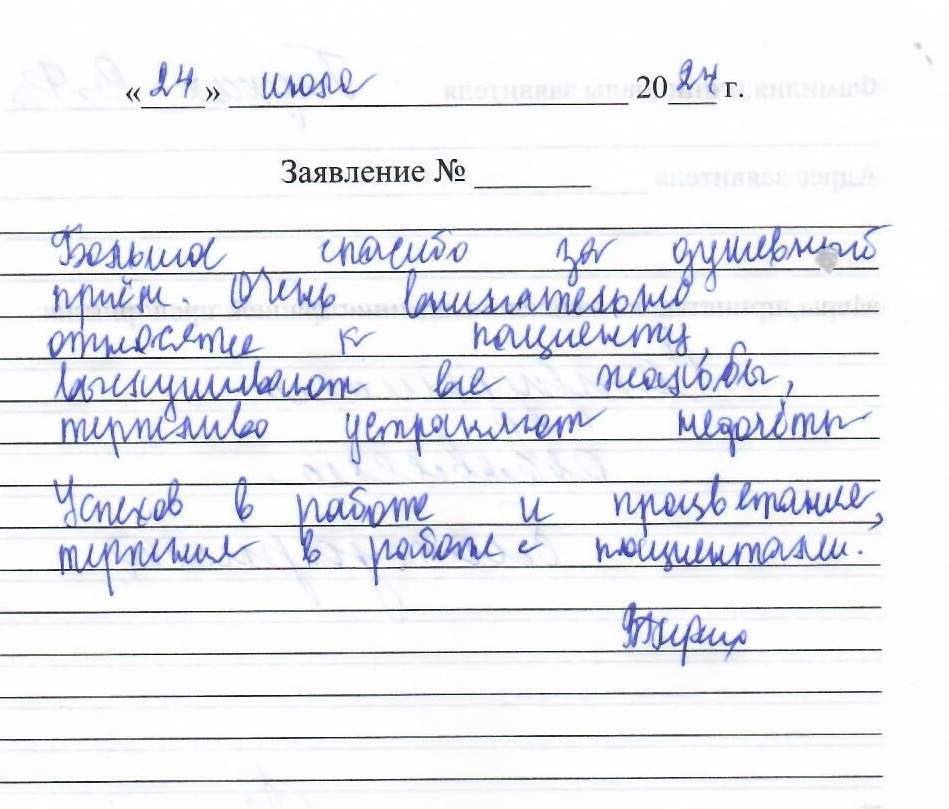 « 24 » июля 2024 г.
Заявление № ______
Большое спасибо за душевный
приём. Очень внимательно
относятся к пациенту,
выслушивают все жалобы,
терпеливо устраняют недочёты
Успехов в работе и процветание,
терпения в работе с пациентами.